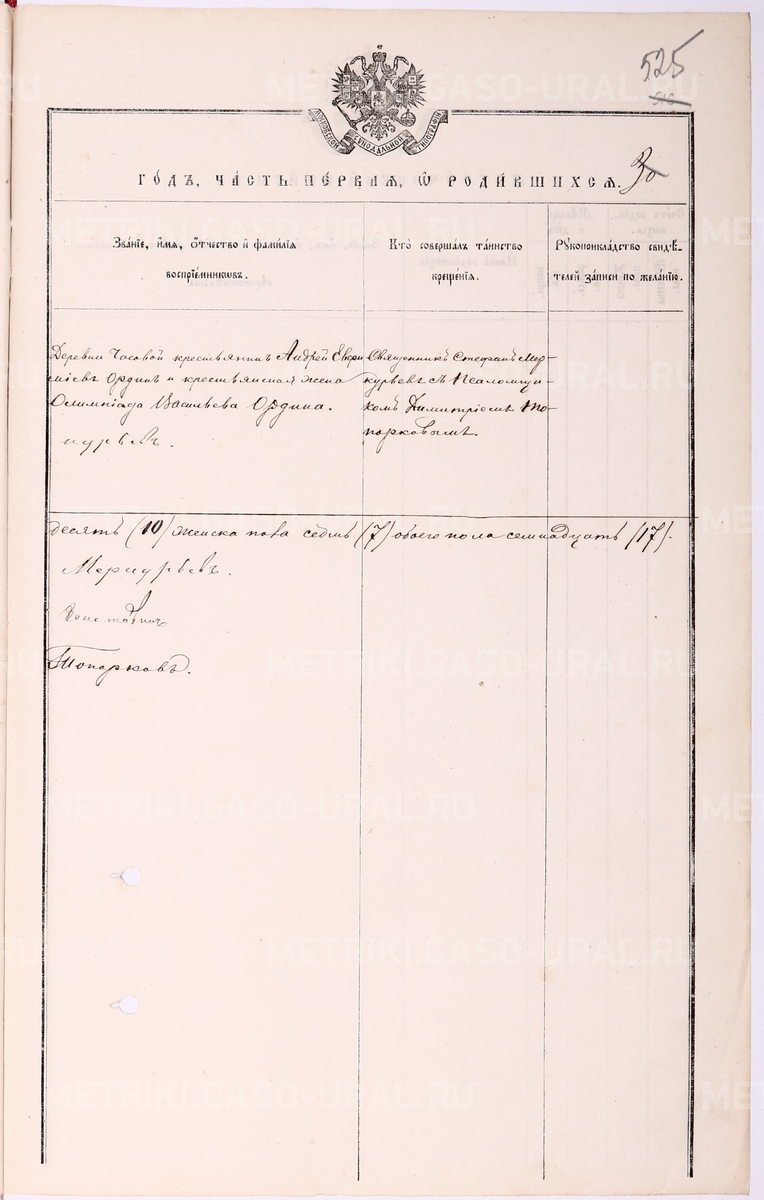 525
510
МОСКОВСКОЙ СѴНОДАЛЬНОЙ ТИПОГРАФІИ
ГО́ДЪ, ЧА́СТЬ ПЕ́РВАЯ, Ѡ РОДИ́ВШИХСЯ. 30
Зва́ніе, и҆́мя, ѻ҆́тчество и҆ фами́лія
воспріе́мникѡвъ.
Кто̀ соверша́лъ та́инство
креще́нія.
Рꙋкоприкла́дство свидѣ́-
телей за́писи по жела́нію.
Деревни Часовой крестьянинъ Андрей Евѳи
міевъ Ординъ и крестьянская жена
Олимпіада Васильева Ордина.
Священникъ Стефанъ Мер-
курьевъ съ Псаломщи-
комъ Димитріемъ То-
порковымъ.
курьевъ.
десять (10) женска пола седмь (7) обоего пола семнадцать (17).
Меркурьевъ.
Топорковъ.
METRIKI.GASO-URAL.RU